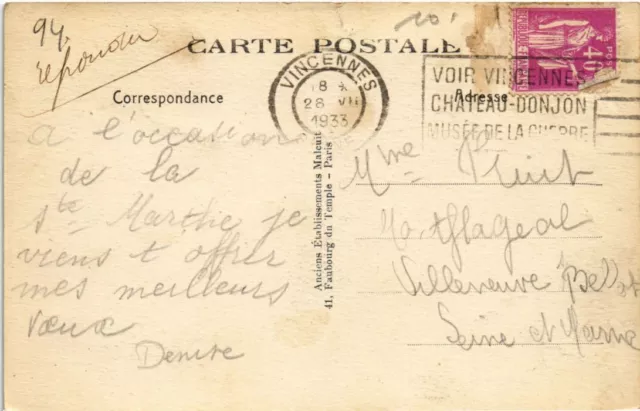 94.
repondu
CARTE POSTALE
Correspondance
Adresse
VINCENNES
18 H
26 VII
1933
VOIR VINCENNES
CHATEAU-DONJON
MUSÉE DE LA GUERRE
40
POSTES
A l'occasion
de la
Ste Marthe je
viens t offrir
mes meilleurs
vœux
Denise
Anciens Établissements Malcuit
41, Faubourg du Temple - Paris
Mme
Villeneuve Bell
Seine et Marne